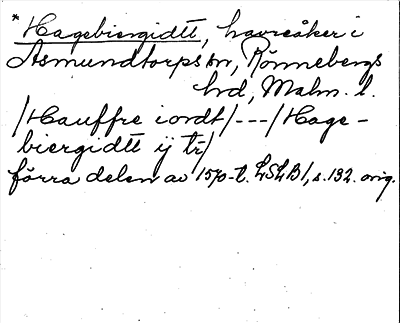 * Hagebiergidtt, havreåker i
Asmundtorps sn, Rönnebergs
hd, Malm. l.
/Hauffre iordt/---/Hage-
biergidtt ij tr/
förra delen av 1570-t. LSLB1, s. 132. orig.